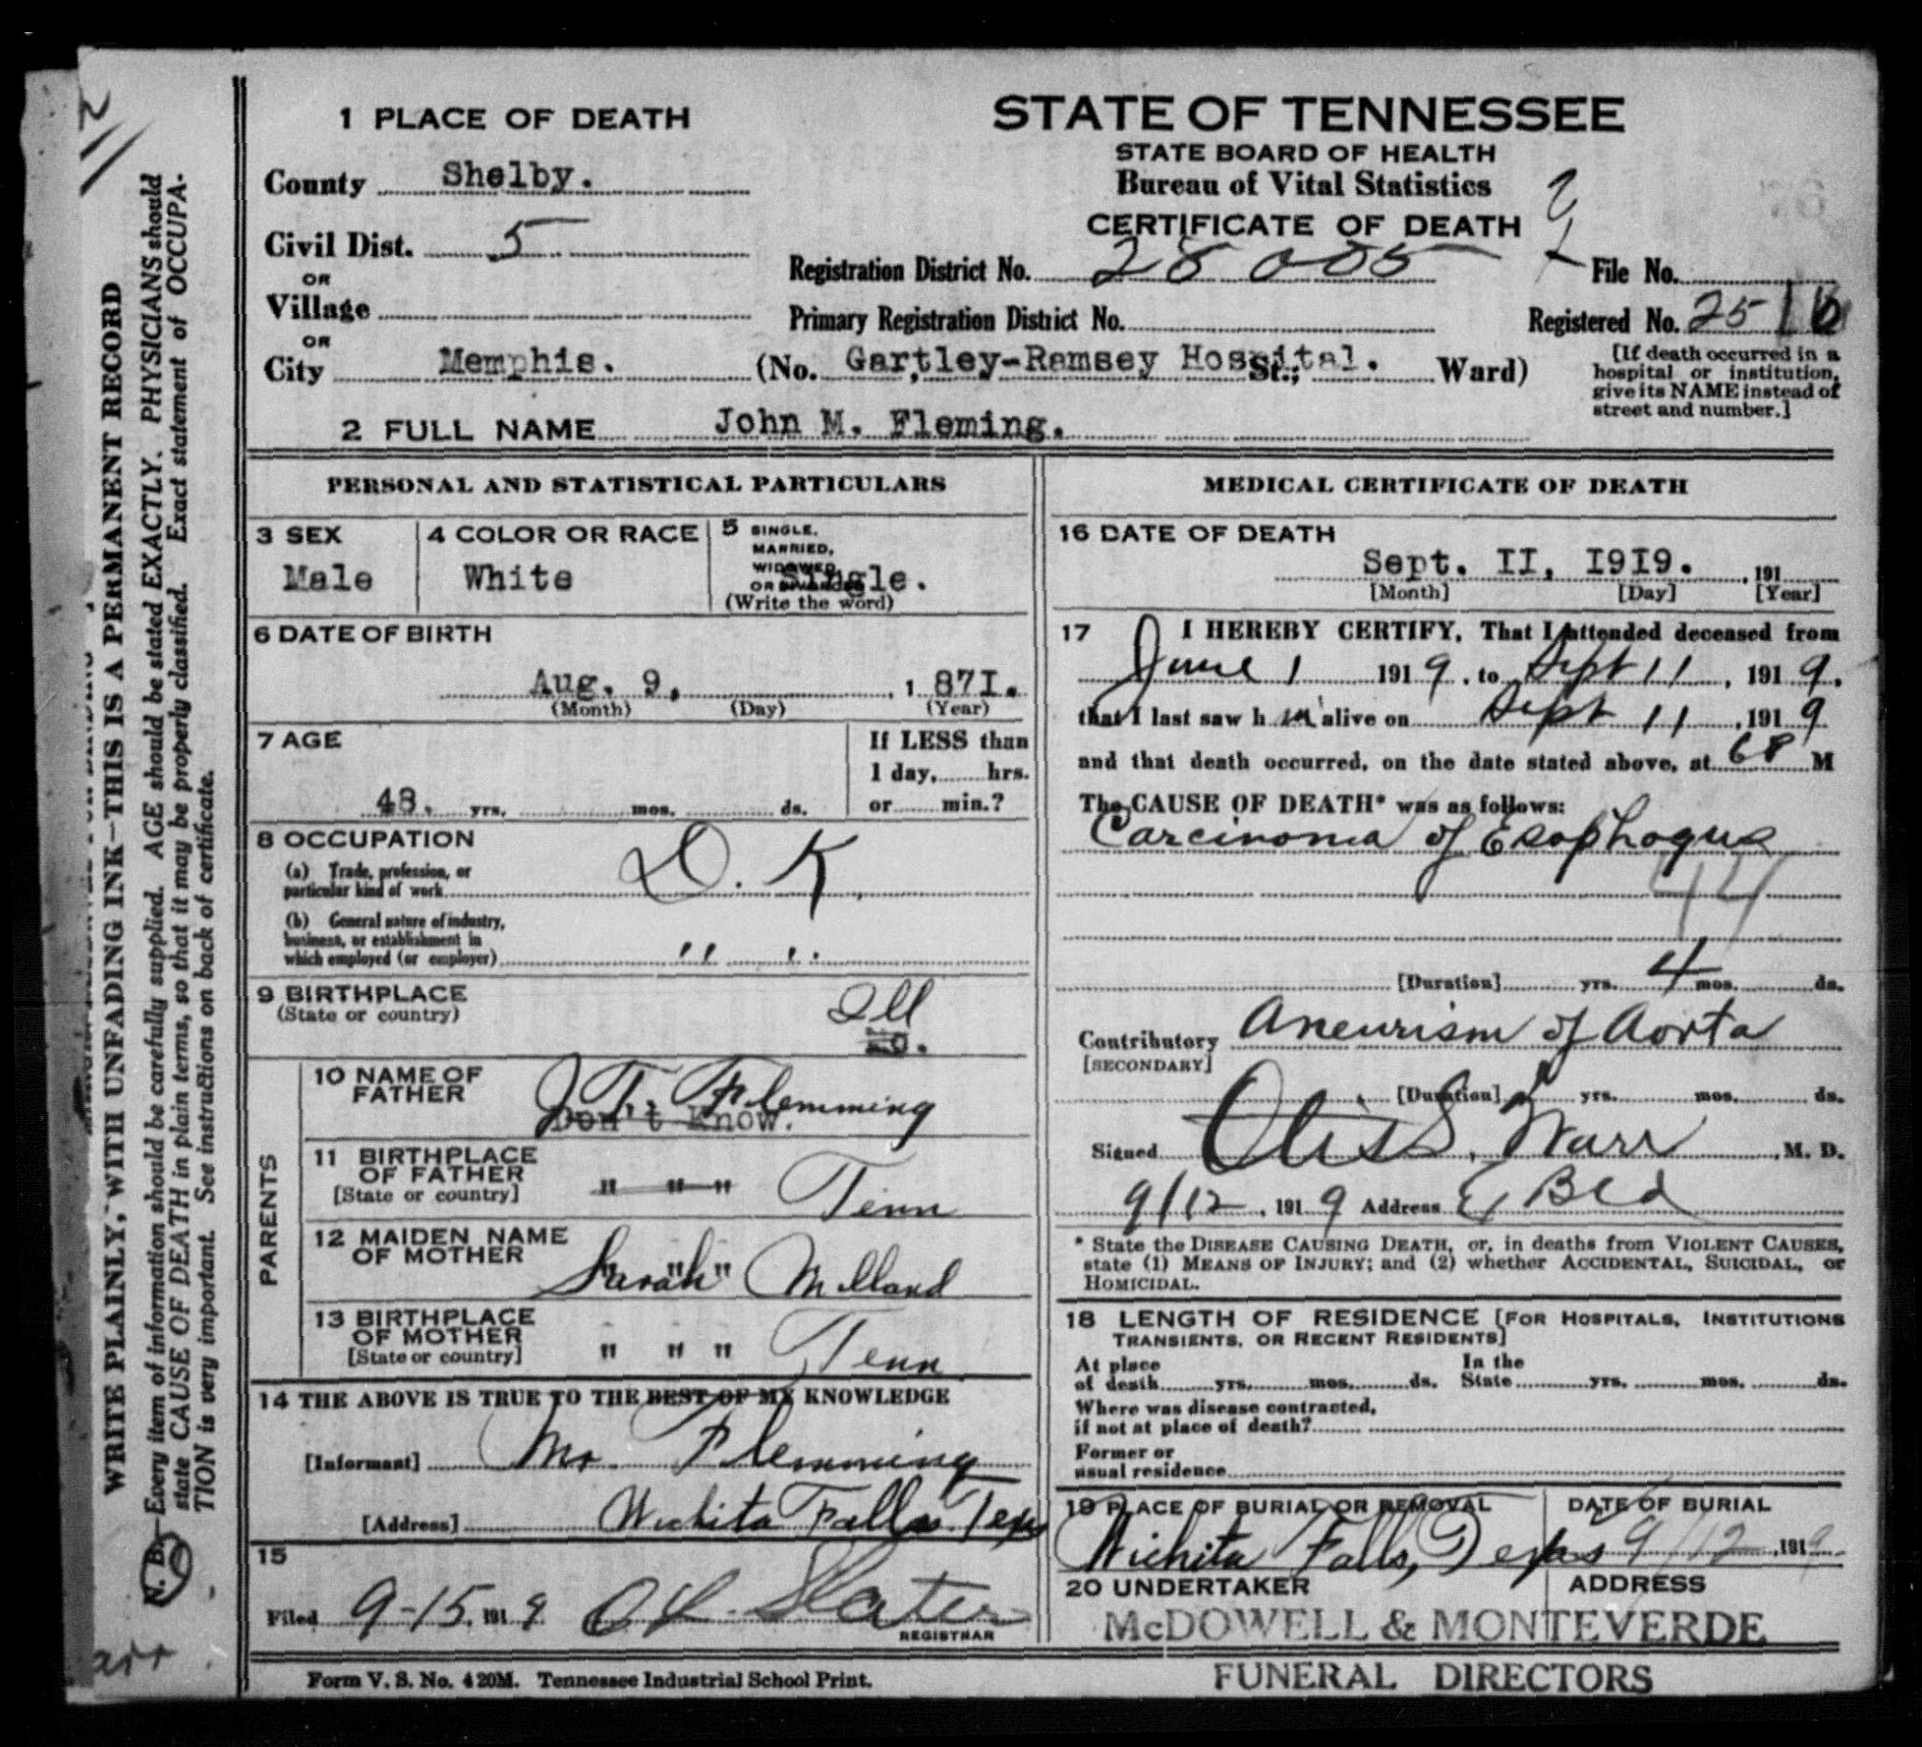 1 PLACE OF DEATH
County Shelby.
Civil Dist. 5
OR
Village
OR
City Memphis. (No. Gartley-Ramsey Hospital. St.; Ward)
2 FULL NAME John M. Fleming.
STATE OF TENNESSEE
STATE BOARD OF HEALTH
Bureau of Vital Statistics
CERTIFICATE OF DEATH
Registration District No. 28005
File No.
Primary Registration District No.
Registered No. 2516
[If death occurred in a
hospital or institution,
give its NAME instead of
street and number.]
PERSONAL AND STATISTICAL PARTICULARS
3 SEX
Male
4 COLOR OR RACE
White
5 SINGLE,
MARRIED,
WIDOWED
OR DIVORCED
Single.
(Write the word)
6 DATE OF BIRTH
Aug. 9, , 1 871.
(Month) (Day) (Year)
7 AGE
48. yrs. mos. ds.
If LESS than
1 day, hrs.
or min.?
8 OCCUPATION
(a) Trade, profession, or
particular kind of work D. K.
(b) General nature of industry,
business, or establishment in
which employed (or employer) " "
9 BIRTHPLACE
(State or country)
Ill
PARENTS
10 NAME OF
FATHER
J. T. Flemming
Don't Know.
11 BIRTHPLACE
OF FATHER
[State or country] " " " Tenn
12 MAIDEN NAME
OF MOTHER
Sarah " " Milland
13 BIRTHPLACE
OF MOTHER
[State or country] " " " Tenn
14 THE ABOVE IS TRUE TO THE BEST OF MY KNOWLEDGE
[Informant] Mr. Flemming
[Address] Wichita Falls Tex
15
Filed 9-15, 191 9 Slater
REGISTRAR
MEDICAL CERTIFICATE OF DEATH
16 DATE OF DEATH
Sept. II, I9I9. , 191
[Month] [Day] [Year]
17 I HEREBY CERTIFY, That I attended deceased from
June 1 1919, to Sept 11, 1919,
that I last saw h im alive on Sept 11, 1919
and that death occurred, on the date stated above, at 6P M
The CAUSE OF DEATH* was as follows:
Carcinoma of Esophogus
[Duration] yrs. 4 mos. ds.
Contributory Aneurism of Aorta
[SECONDARY]
[Duration] yrs. mos. ds.
Signed Otis S. Warr, M. D.
9/12, 1919 Address Ex Bld
* State the DISEASE CAUSING DEATH, or, in deaths from VIOLENT CAUSES,
state (1) MEANS OF INJURY; and (2) whether ACCIDENTAL, SUICIDAL, or
HOMICIDAL.
18 LENGTH OF RESIDENCE [FOR HOSPITALS, INSTITUTIONS
TRANSIENTS, OR RECENT RESIDENTS]
At place
of death yrs. mos. ds.
In the
State yrs. mos. ds.
Where was disease contracted,
if not at place of death?
Former or
usual residence
19 PLACE OF BURIAL OR REMOVAL
Wichita Falls, Texas
DATE OF BURIAL
9/12, 1919
20 UNDERTAKER
ADDRESS
McDOWELL & MONTEVERDE
FUNERAL DIRECTORS
Form V. S. No. 4 20M. Tennessee Industrial School Print.
WRITE PLAINLY, WITH UNFADING INK—THIS IS A PERMANENT RECORD
N. B.—Every item of information should be carefully supplied. AGE should be stated EXACTLY. PHYSICIANS should
state CAUSE OF DEATH in plain terms, so that it may be properly classified. Exact statement of OCCUPA-
TION is very important. See instructions on back of certificate.